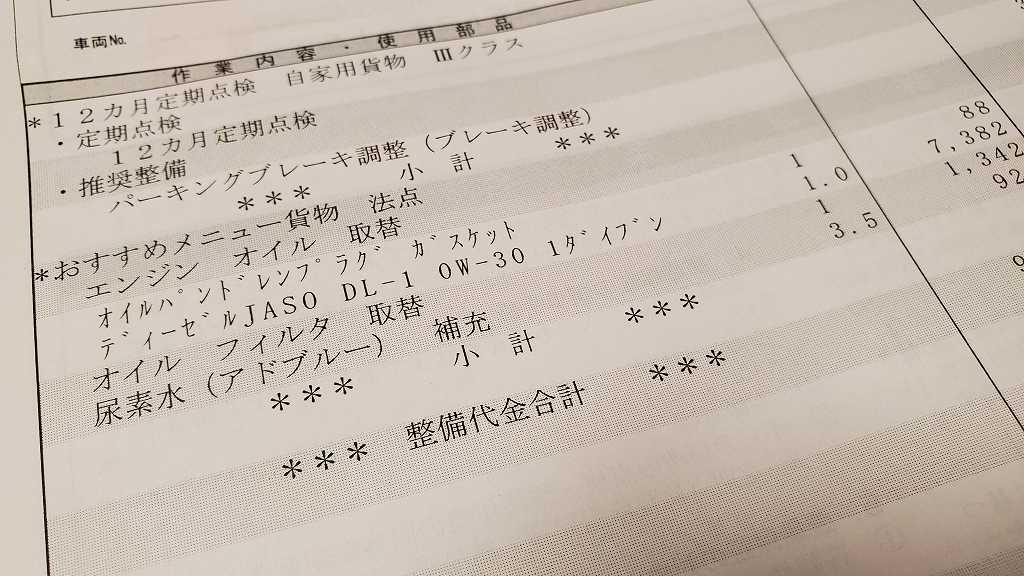 車両No.
作業内容・使用部品
*12カ月定期点検 自家用貨物 Ⅲクラス
・定期点検
12カ月定期点検
・推奨整備
パーキングブレーキ調整(ブレーキ調整)
*** 小計 ***
*おすすめメニュー貨物 法点
エンジン オイル 取替
オイルパンドレンプラグ ガスケット 1 88
ディーゼルJASO DL-1 0W-30 1ダイブン 1.0 7,382
オイル フィルタ 取替 1 1,342
尿素水(アドブルー) 補充 3.5 92
*** 小計 ***
*** 整備代金合計 ***